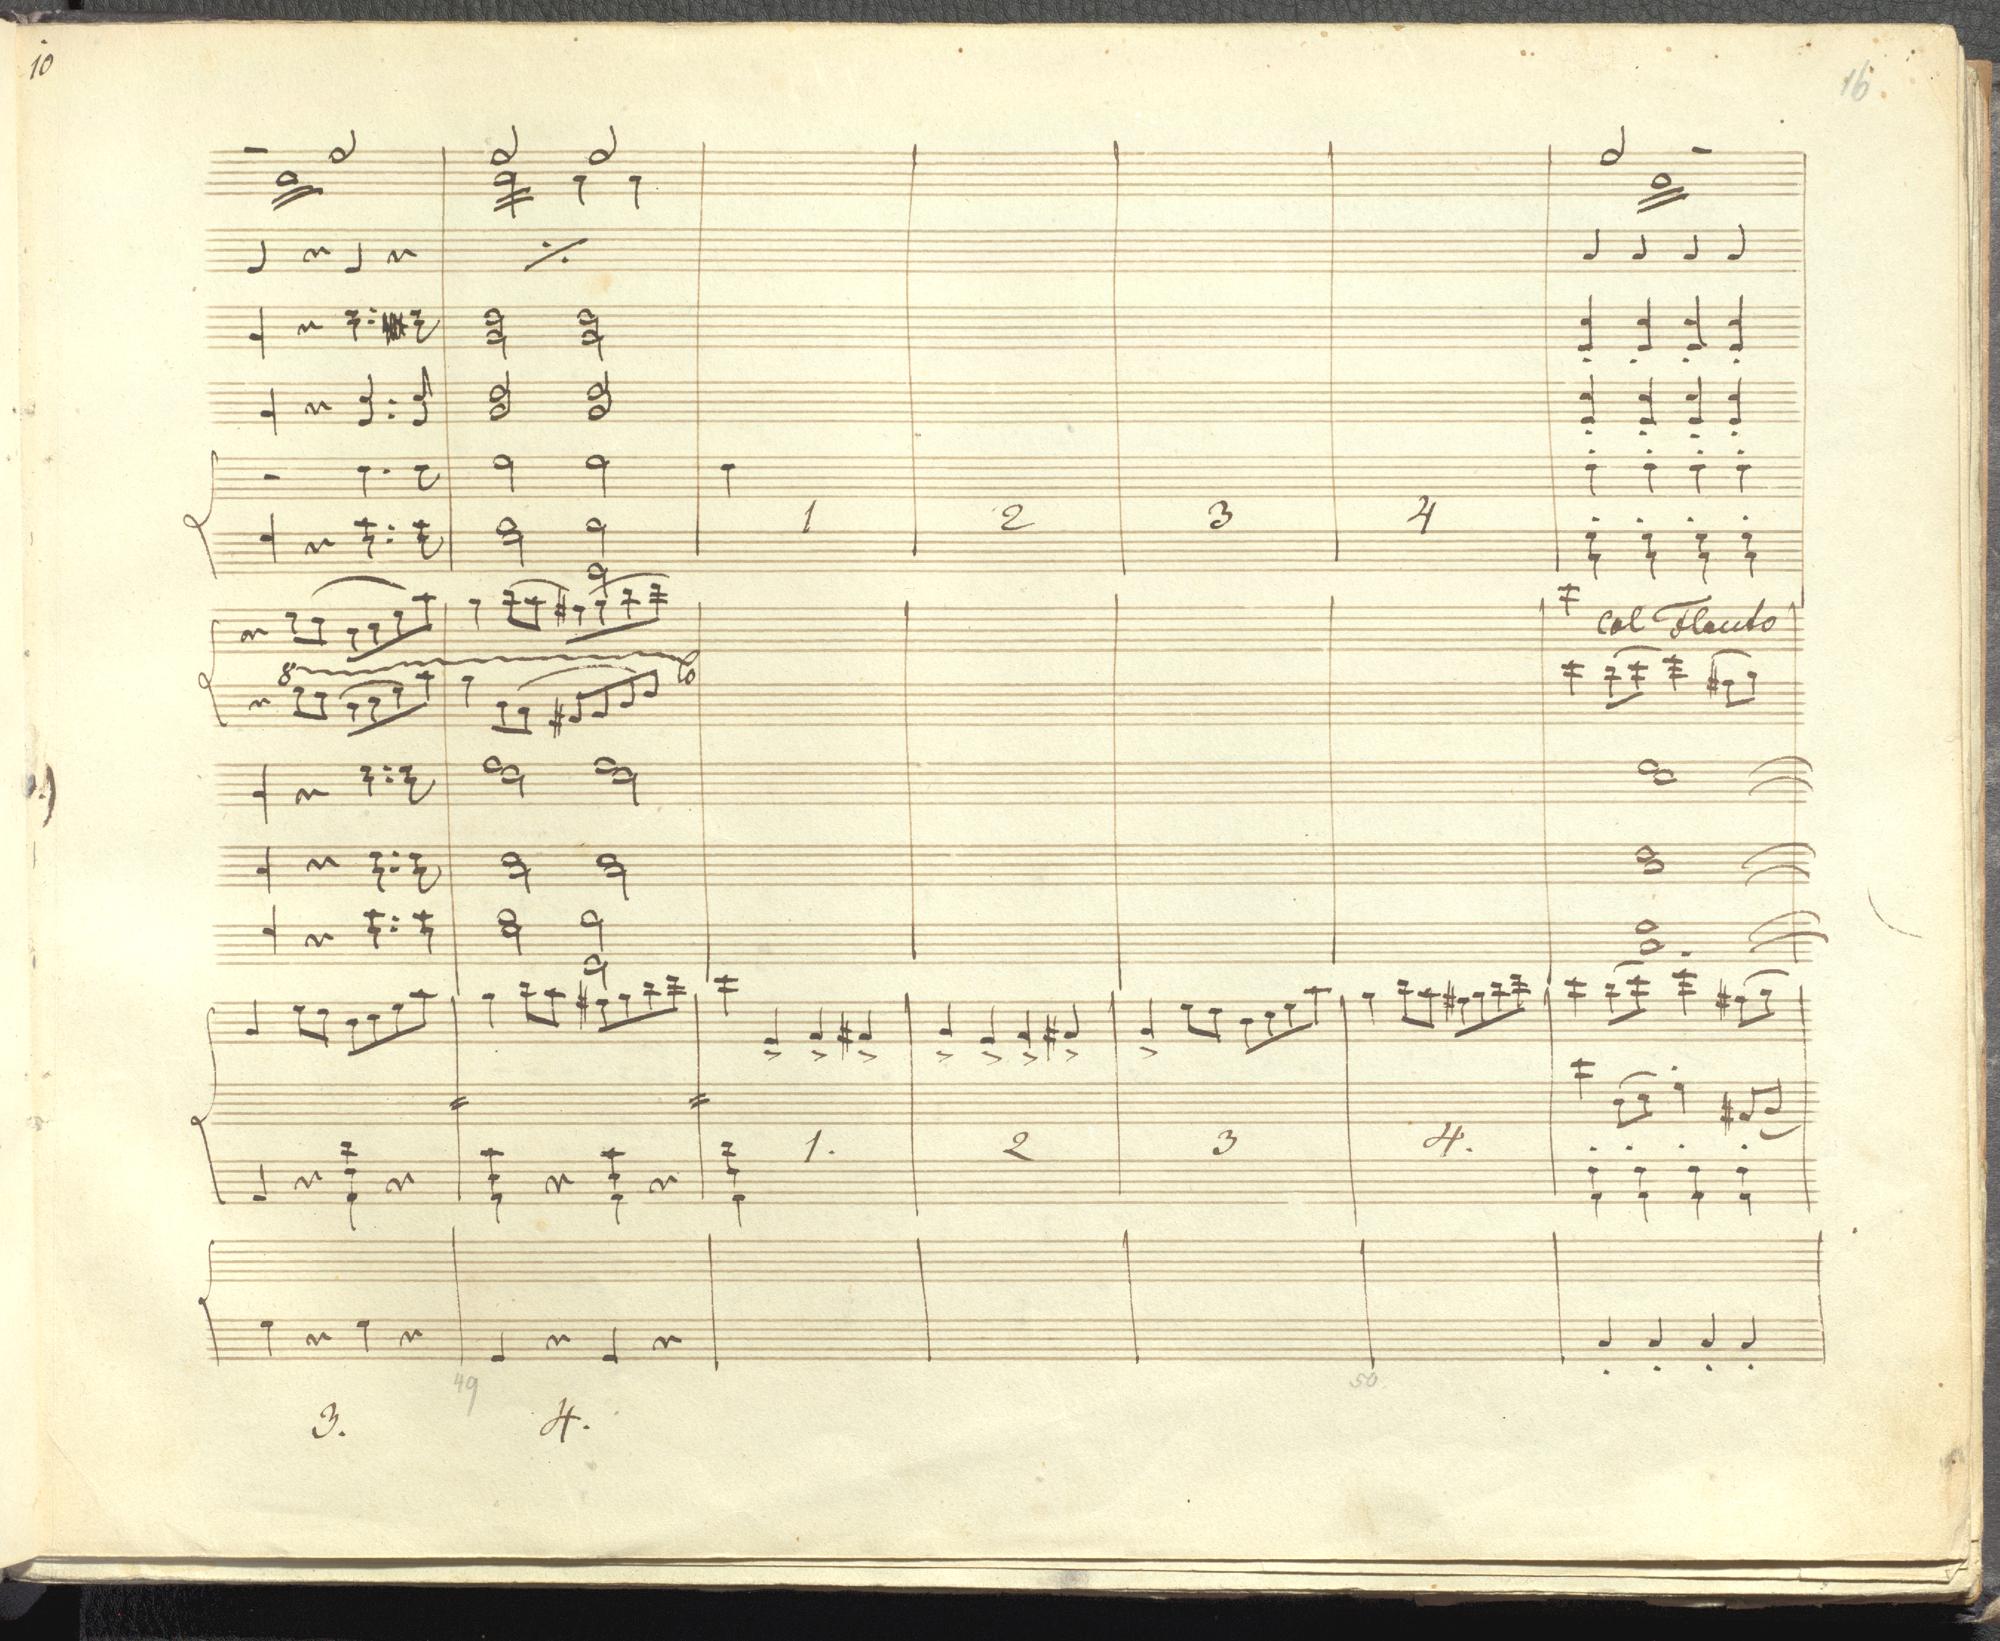 10
16.
1 2 3 4
8
Col Flauto
1. 2 3 4.
49 50
3. 4.